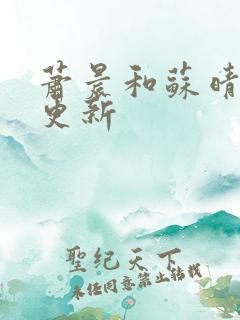 蕭晨和蘇晴
更新
聖纪天下
未经同意禁止转载